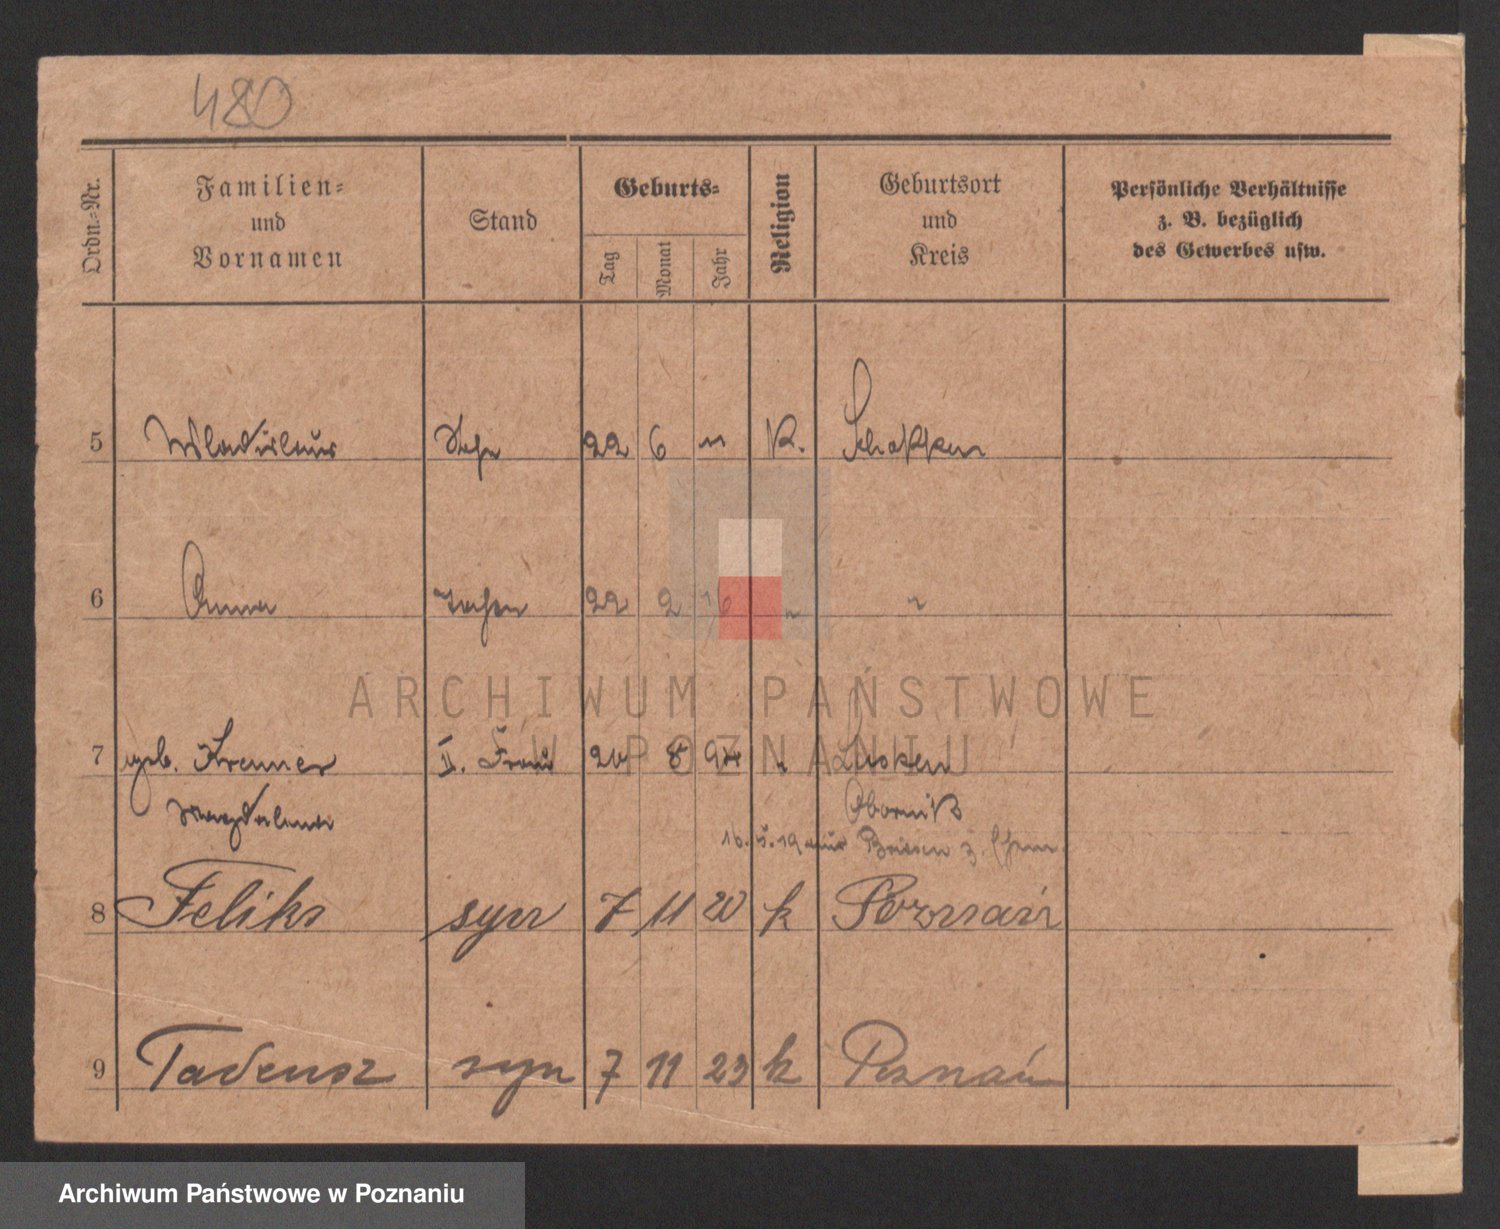 480
Ordn.=Nr.
Familien=
und
Vornamen
Stand
Geburts=
Tag
Monat
Jahr
Religion
Geburtsort
und
Kreis
Persönliche Verhältnisse
z. B. bezüglich
des Gewerbes usw.
5 Wladislaus Sohn 22 6 11 K. Schokken
6 Anna 22 2 16 "
ARCHIWUM PAŃSTWOWE
W POZNANIU
7 geb. Kremer II. Frau 8
Magdalena Obornik
aus
8 Feliks syn 7 11 20 k Poznań
9 Tadeusz syn 7 11 23 k Poznań
Archiwum Państwowe w Poznaniu